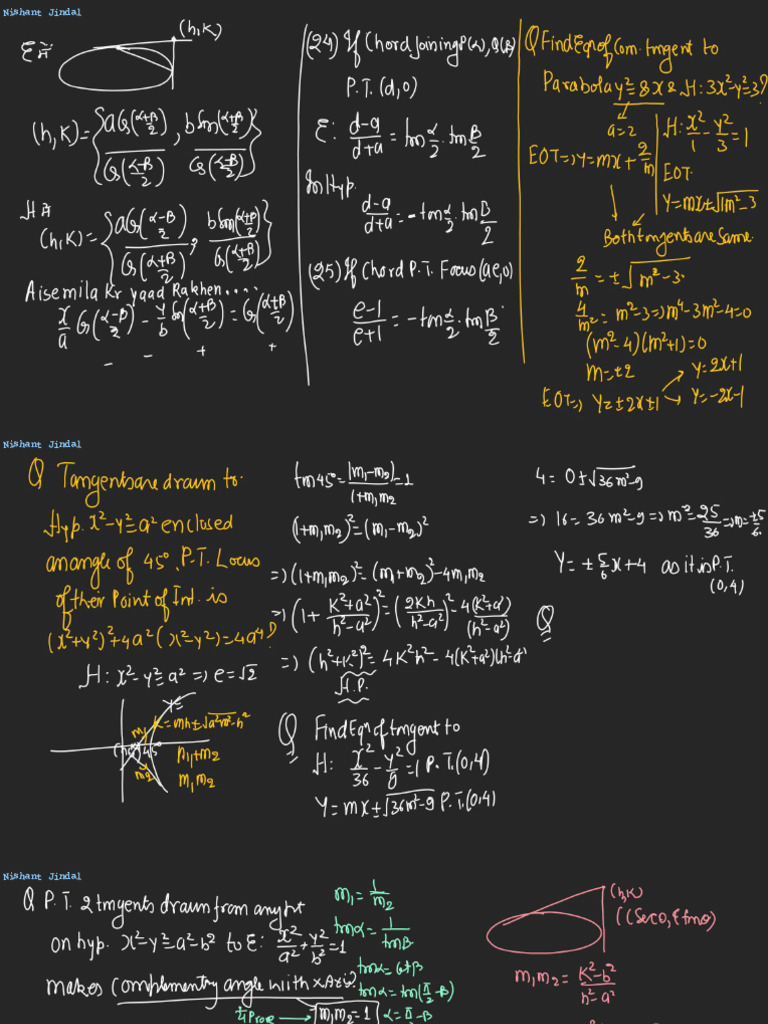 Nishant Jindal
(h,K)
E में
(h,K)={aCs(α+β/2)/Cs(α-β/2), bSm(α+β/2)/Cs(α-β/2)}
H में
(h,K)={aCs(α-β/2)/Cs(α+β/2), bSm(α+β/2)/Cs(α+β/2)}
Aise mila Kr yaad Rakhen....
x/a Cs(α-β/2) - y/b Sm(α+β/2) = Cs(α+β/2)
- - + +
(24) If Chord Joining P(α), Q(β)
P.T. (d,0)
E: d-a/d+a = tmα/2 . tmβ/2
In Hyp.
d-a/d+a = -tmα/2 . tmβ/2
(25) If Chord P.T. Focus (ae,0)
e-1/e+1 = -tmα/2 . tmβ/2
Q Find Eqn of Com. tmgent to
Parabola y²=8x & H: 3x²-y²=3?
a=2
H: x²/1 - y²/3 = 1
EOT=) y=mx+2/m
EOT.
Y=mx±√1m²-3
Both tmgents are Same.
2/m = ±√m²-3
4/m² = m²-3 =) m⁴-3m²-4=0
(m²-4)(m²+1)=0
m=±2
Y=2x+1
EOT=) Y=±2x±1
Y=-2x-1
Nishant Jindal
Q Tangents are drawn to
Hyp. x²-y²=a² enclosed
an angle of 45°, P.T. Locus
of their Point of Int. is
(x²+y²)²+4a²(x²-y²)=4a⁴?
H: x²-y²=a² =) e=√2
K=mh±√a²m²-b²
m1
45°
m2
m1+m2
m1m2
tm45°=|m1-m2|/1+m1m2=1
(1+m1m2)²=(m1-m2)²
=) (1+m1m2)²=(m1+m2)²-4m1m2
=) (1+K²+a²/h²-a²)²=(2Kh/h²-a²)²-4(K²+a²)/(h²-a²)
=) (h²+K²)²=4K²h²-4(K²+a²)(h²-a²)
H.P.
Q Find Eqn of tmgent to
H: x²/36 - y²/9 = 1 P.T.(0,4)
Y=mx±√36m²-9 P.T.(0,4)
4=0±√36m²-9
=) 16=36m²-9 =) m²=25/36 =) m=±5/6.
Y=±5/6x+4 as it is P.T.
(0,4)
Q
Nishant Jindal
Q P.T. 2 tmgents drawn from any pt
on hyp. x²-y²=a²-b² to E: x²/a²+y²/b²=1
makes Complementry angle with x Axis?
m1=1/m2
tmα=1/tmβ
tmα=Cotβ
tmα=tm(π/2-β)
α=π/2-β
to Prove → m1m2=1
(h,K)
m1m2=K²-b²/h²-a²